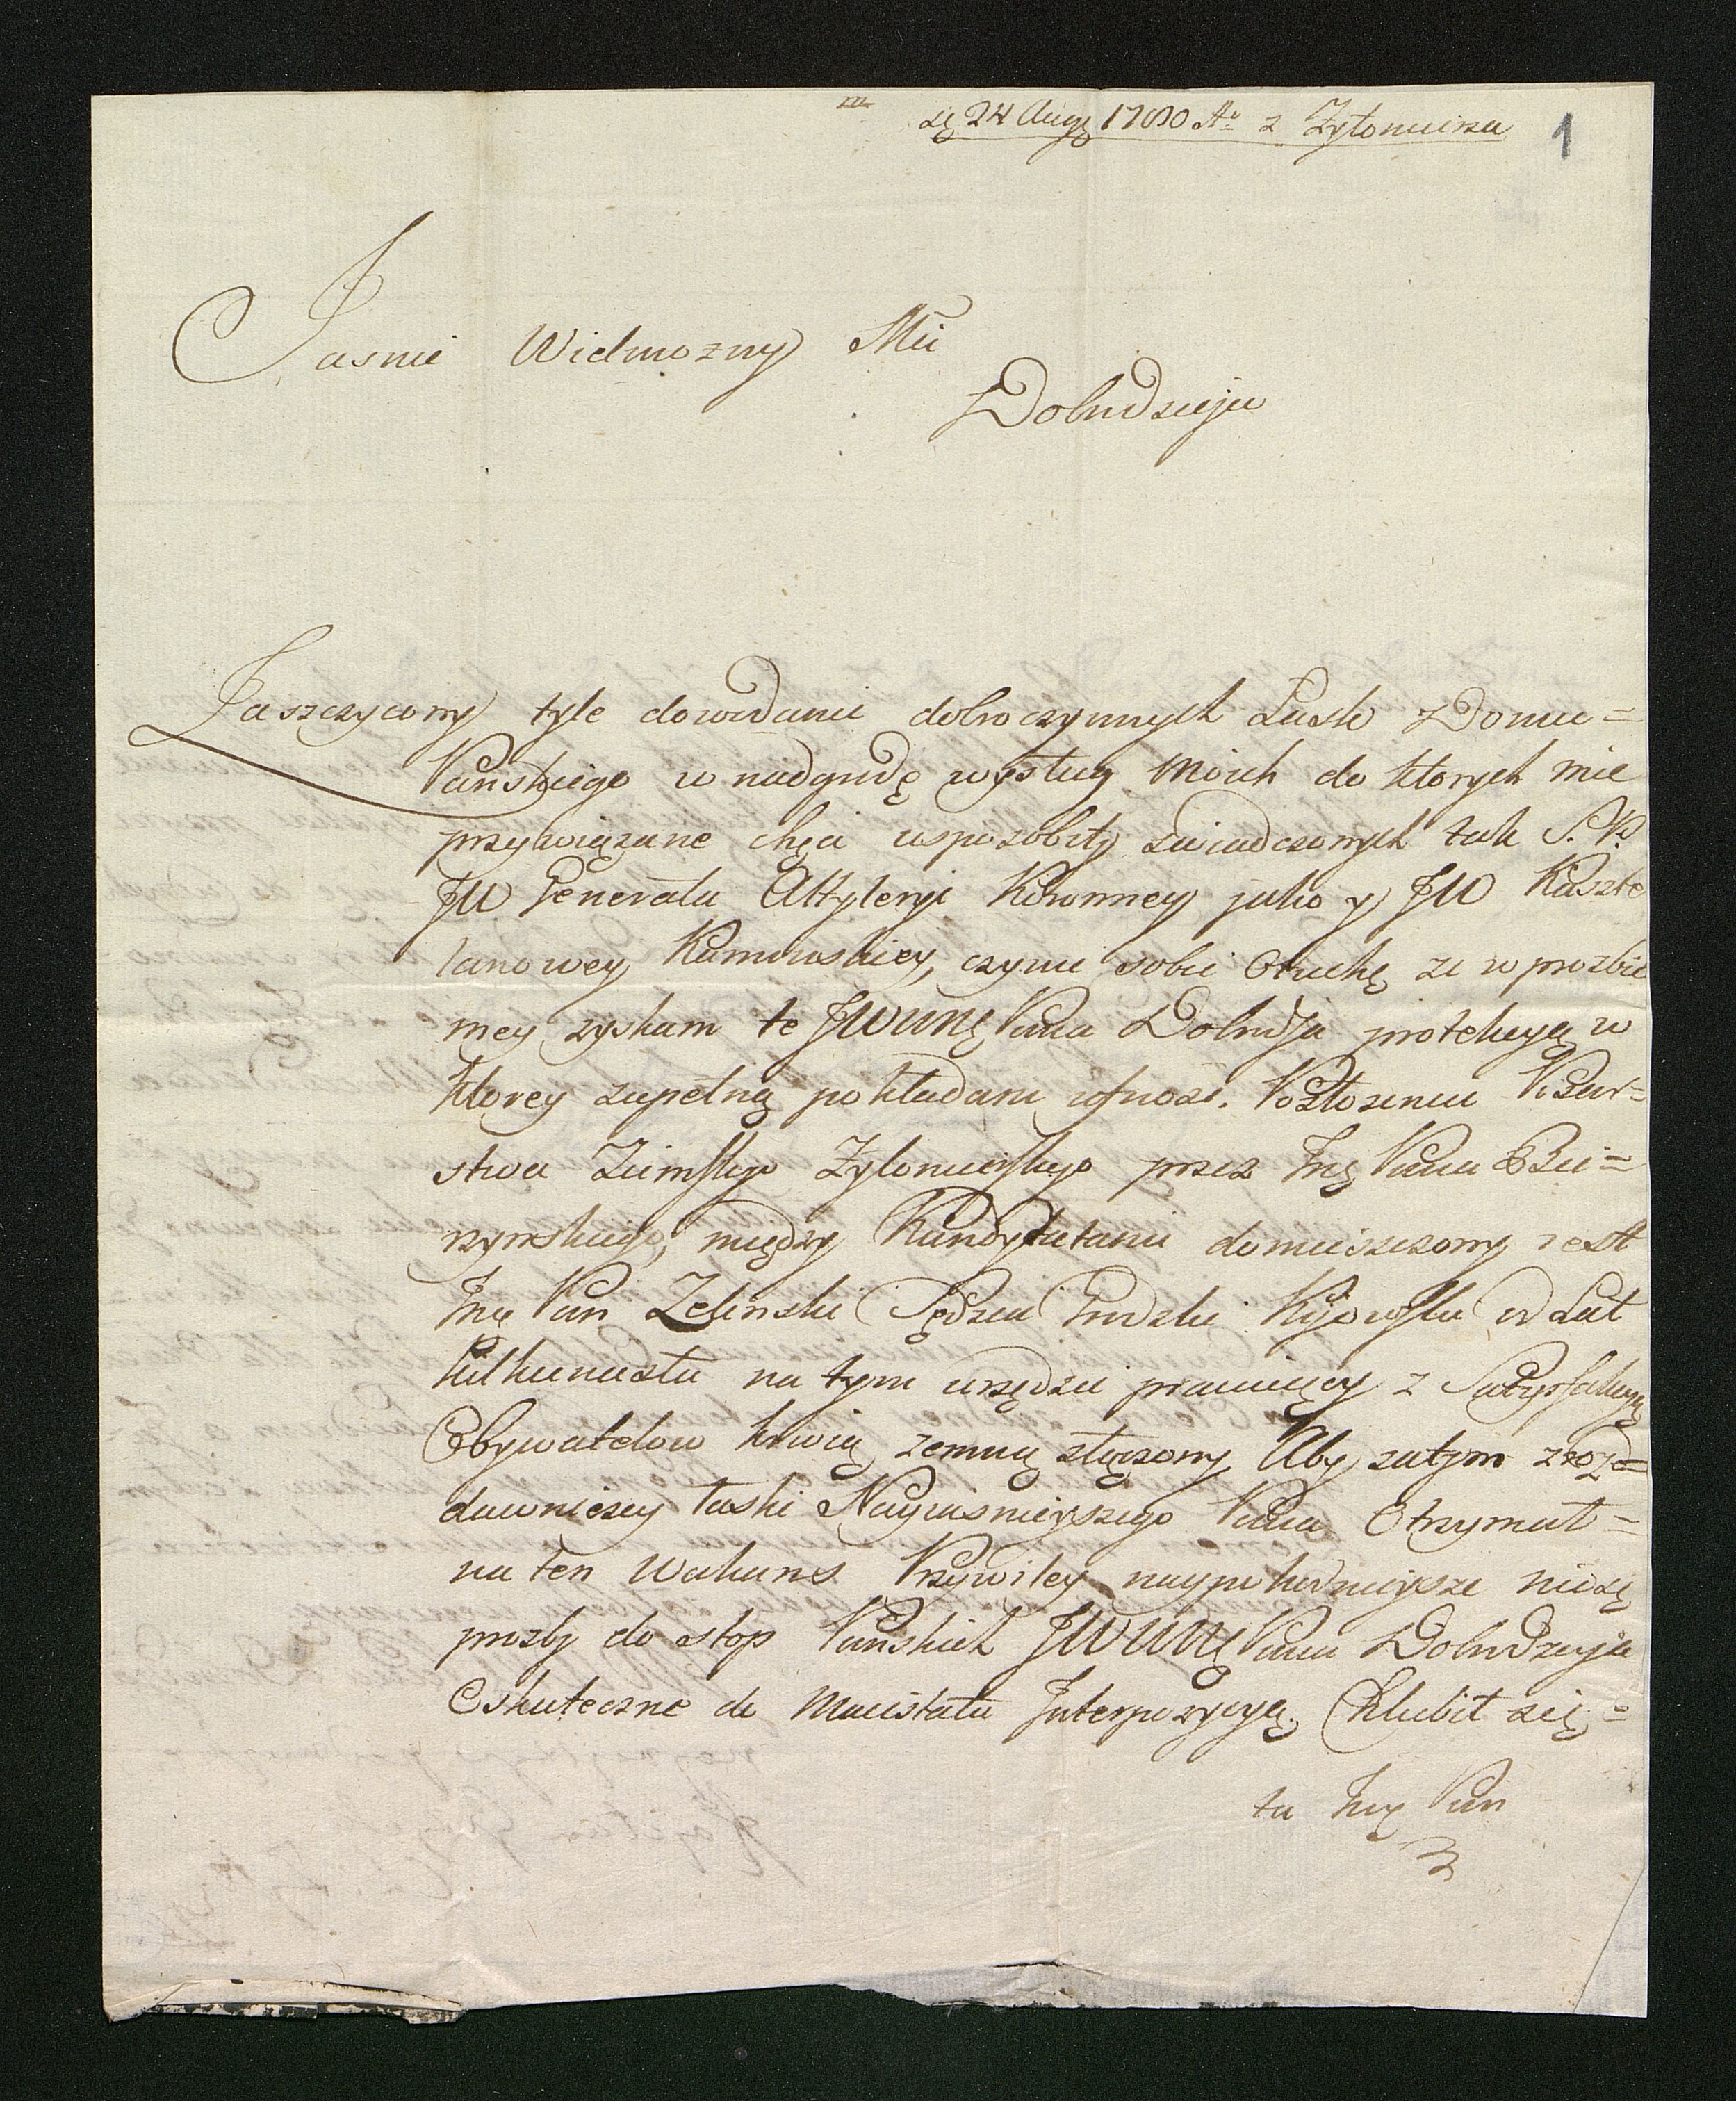 24 Augę 1780 Ao z Zytomirza
1
Jasnie Wielmozny Mci
Dobrodzieju
Zaszczycony tyle dowodami dobroczynnych Łask z Domu=
Pańskiego w nadgrodę wysług moich do ktorych mie
przywiązane chęci usposobiły swiadczonych tak S. P.
JW Generała Artyleryi Koronney jako y JW Kaszte
lanowey Kaminskiey, czynie sobie Otuchę ze w prozbie
mey zyskam te JWWMę Pana Dobrdja protekcyą w
ktorey zupełną pokładam ufność. Po złożeniu Pisar=
stwa Ziemskiego Zytomirskiego przez Jmę Pana Bie=
rzynskiego, między Kandydatami domieszczony iest
Jmę Pan Zelinski Sędzia Grodzki Kijowski od Lat
kilkunastu na tym urzędzie pracuiący z Satysfakcyą
Obywatelow krwią zemną złączony Aby zatym z
dawniczey łaski Nayiasnieyszego Pana Otrzymał=
na ten Wakans Przywiley naypokornieysze niosę
prozby do stop Pańskich JWWMę Pana Dobrodzieja
O skuteczne do Maiestatu Interpozycyą. Chlubił się=
ta Jmę Pan